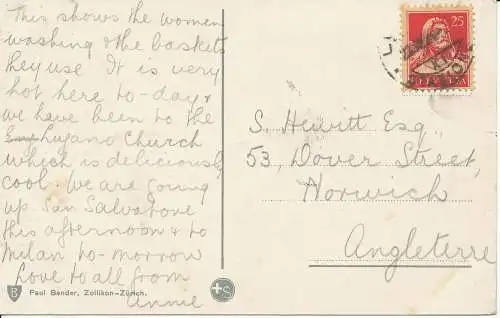 This shows the women
washing & the baskets
they use. It is very
hot here to-day &
we have been to the
Lugano Church
which is deliciously
cool. We are going
up San Salvatore
this afternoon & to
Milan to-morrow
Love to all from
Annie
Paul Bender, Zollikon-Zürich.
25
HELVETIA
S. Hewitt Esq.,
53, Dover Street,
Norwich
Angleterre